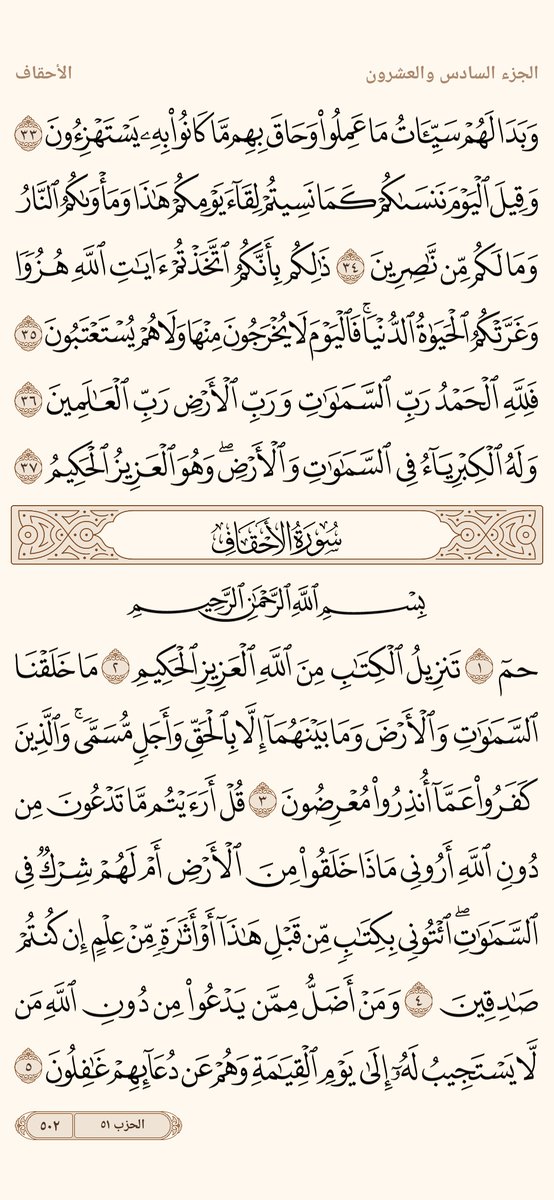 الجزء السادس والعشرون الأحقاف
وَبَدَا لَهُمْ سَيِّـَٔاتُ مَا عَمِلُوا۟ وَحَاقَ بِهِم مَّا كَانُوا۟ بِهِۦ يَسْتَهْزِءُونَ ٣٣
وَقِيلَ ٱلْيَوْمَ نَنسَىٰكُمْ كَمَا نَسِيتُمْ لِقَآءَ يَوْمِكُمْ هَٰذَا وَمَأْوَىٰكُمُ ٱلنَّارُ
وَمَا لَكُم مِّن نَّٰصِرِينَ ٣٤ ذَٰلِكُم بِأَنَّكُمُ ٱتَّخَذْتُمْ ءَايَٰتِ ٱللَّهِ هُزُوًا
وَغَرَّتْكُمُ ٱلْحَيَوٰةُ ٱلدُّنْيَا ۚ فَٱلْيَوْمَ لَا يُخْرَجُونَ مِنْهَا وَلَا هُمْ يُسْتَعْتَبُونَ ٣٥
فَلِلَّهِ ٱلْحَمْدُ رَبِّ ٱلسَّمَٰوَٰتِ وَرَبِّ ٱلْأَرْضِ رَبِّ ٱلْعَٰلَمِينَ ٣٦
وَلَهُ ٱلْكِبْرِيَآءُ فِى ٱلسَّمَٰوَٰتِ وَٱلْأَرْضِ ۖ وَهُوَ ٱلْعَزِيزُ ٱلْحَكِيمُ ٣٧
سُورَةُ الأَحْقَافِ
بِسْمِ ٱللَّهِ ٱلرَّحْمَٰنِ ٱلرَّحِيمِ
حمٓ ١ تَنزِيلُ ٱلْكِتَٰبِ مِنَ ٱللَّهِ ٱلْعَزِيزِ ٱلْحَكِيمِ ٢ مَا خَلَقْنَا
ٱلسَّمَٰوَٰتِ وَٱلْأَرْضَ وَمَا بَيْنَهُمَآ إِلَّا بِٱلْحَقِّ وَأَجَلٍ مُّسَمًّى ۚ وَٱلَّذِينَ
كَفَرُوا۟ عَمَّآ أُنذِرُوا۟ مُعْرِضُونَ ٣ قُلْ أَرَءَيْتُم مَّا تَدْعُونَ مِن
دُونِ ٱللَّهِ أَرُونِى مَاذَا خَلَقُوا۟ مِنَ ٱلْأَرْضِ أَمْ لَهُمْ شِرْكٌ فِى
ٱلسَّمَٰوَٰتِ ۖ ٱئْتُونِى بِكِتَٰبٍ مِّن قَبْلِ هَٰذَآ أَوْ أَثَٰرَةٍ مِّنْ عِلْمٍ إِن كُنتُمْ
صَٰدِقِينَ ٤ وَمَنْ أَضَلُّ مِمَّن يَدْعُوا۟ مِن دُونِ ٱللَّهِ مَن
لَّا يَسْتَجِيبُ لَهُۥٓ إِلَىٰ يَوْمِ ٱلْقِيَٰمَةِ وَهُمْ عَن دُعَآئِهِمْ غَٰفِلُونَ ٥
الحزب ٥١ ٥٠٢